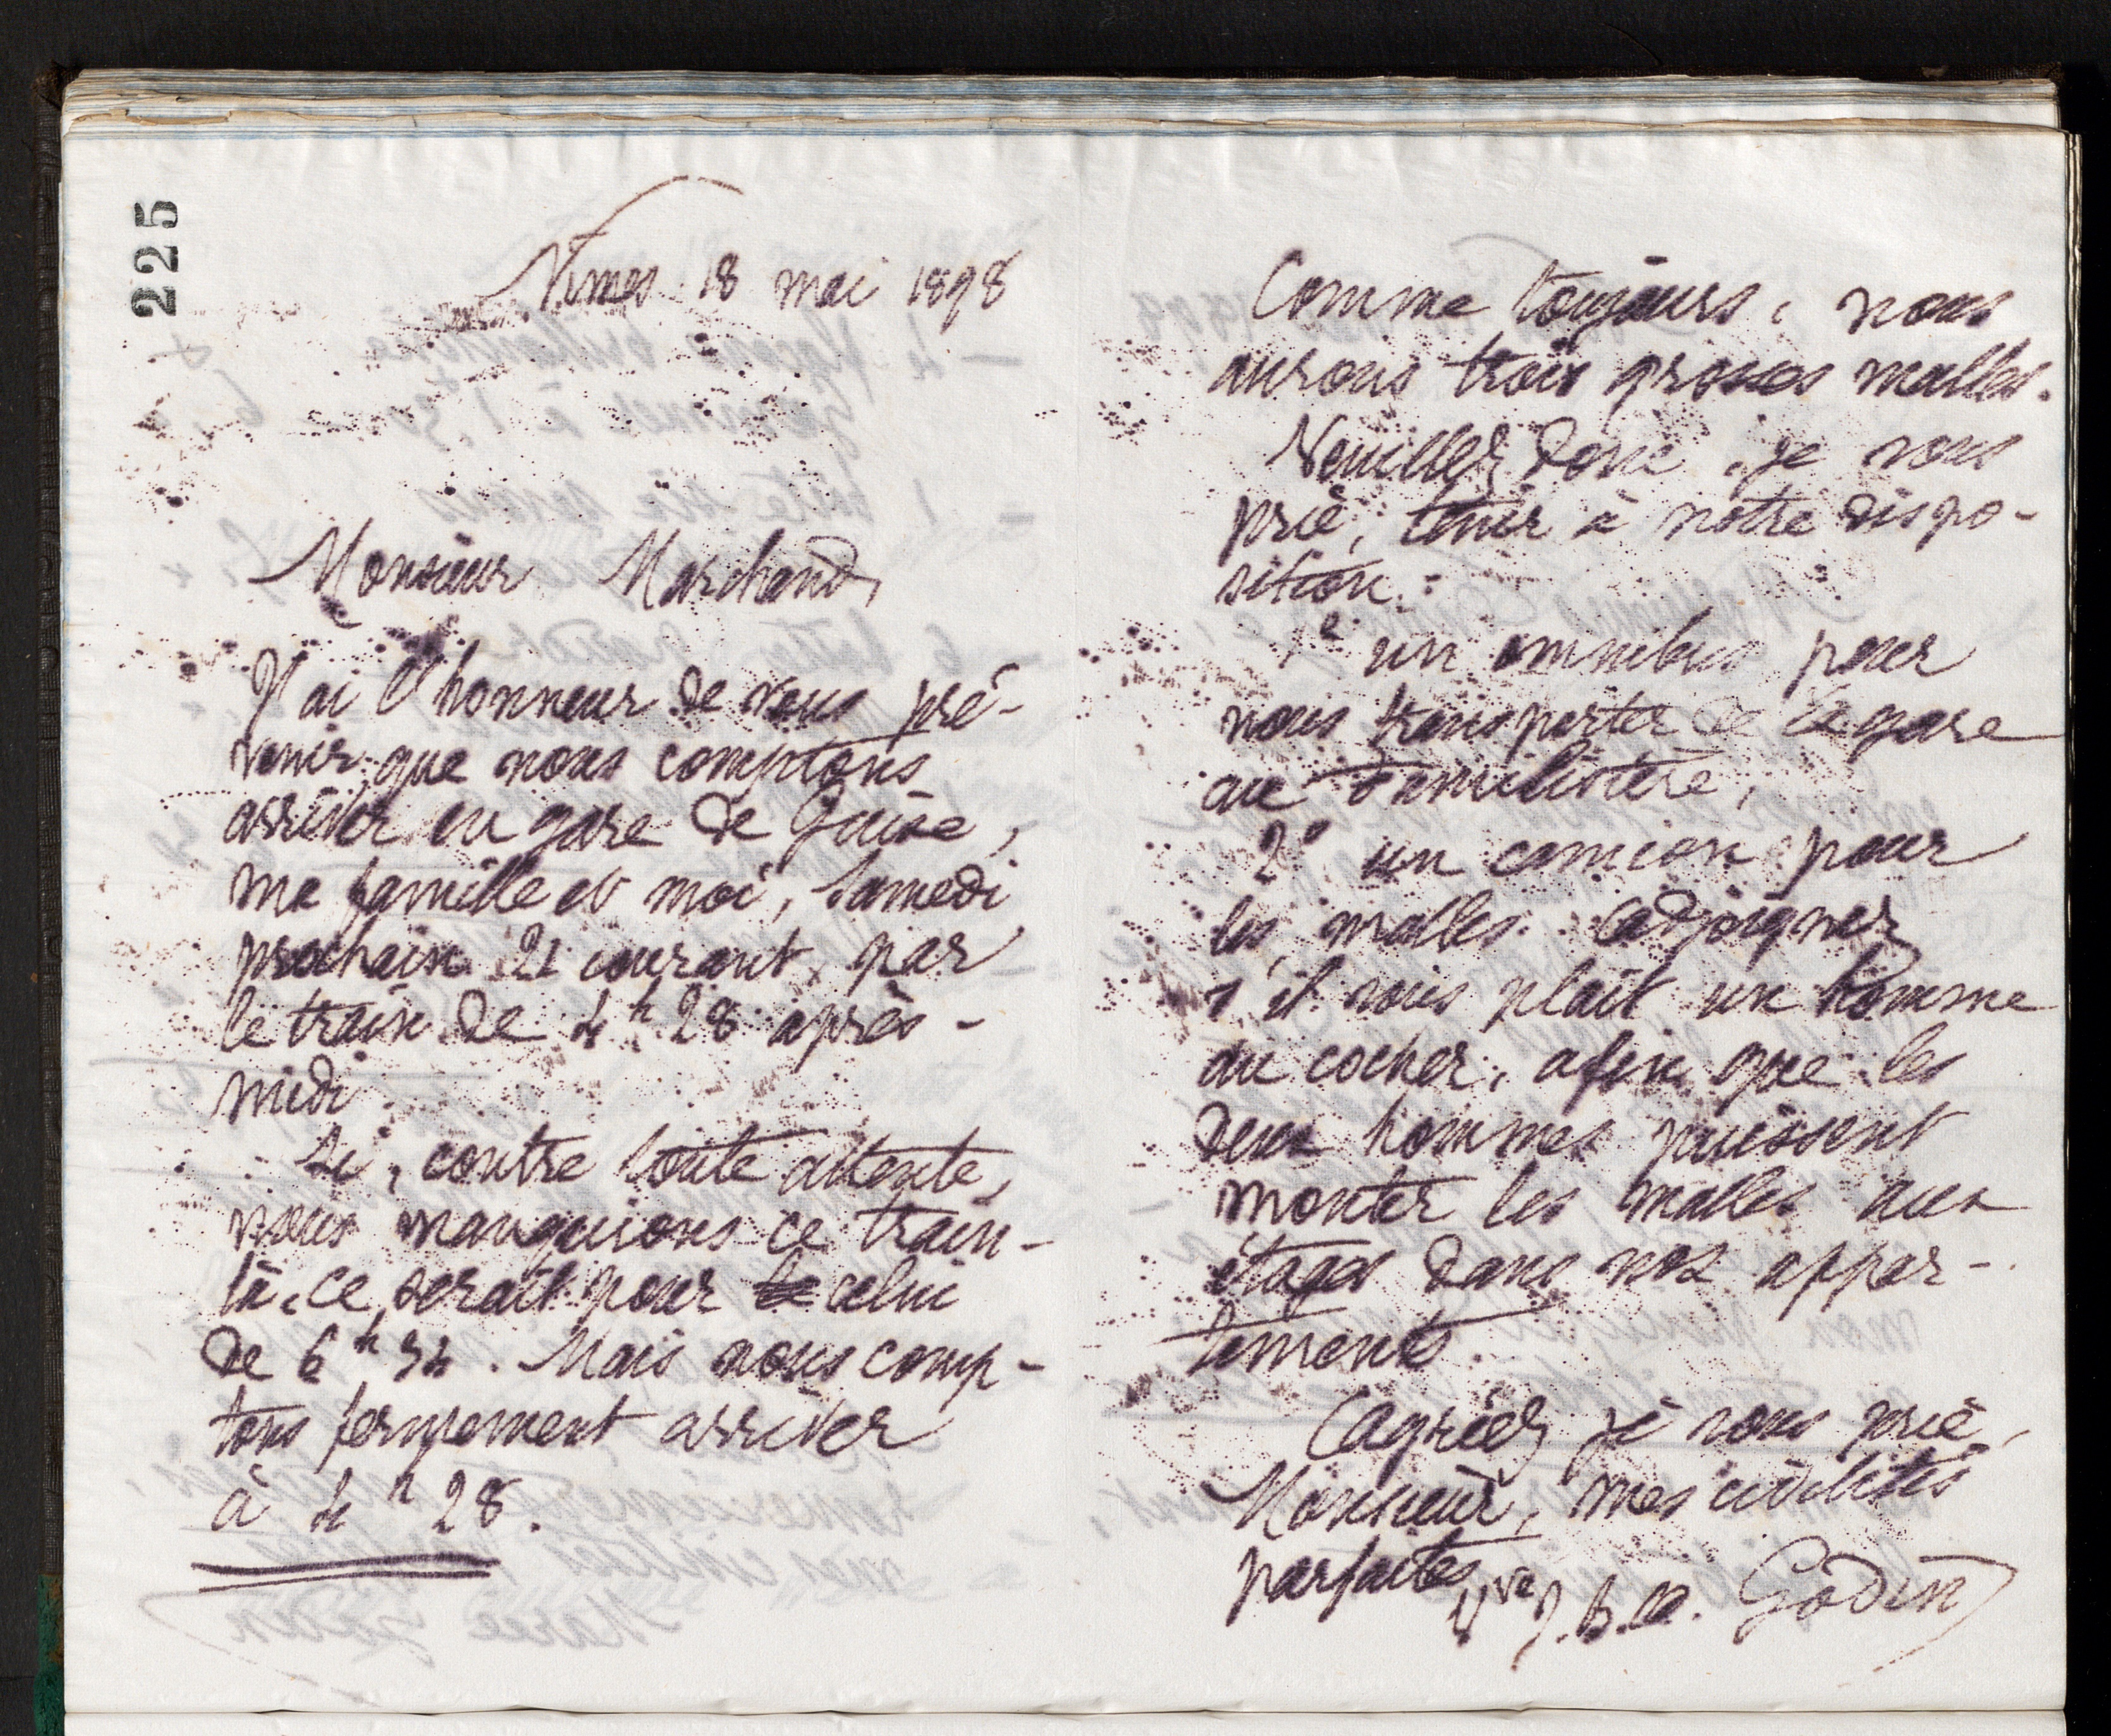 225
Nîmes 18 mai 1898
Monsieur Marchand,
J'ai l'honneur de vous pré-
venir que nous comptons
arriver en gare de Guise,
ma famille et moi, samedi
prochain 21 courant, par
le train de 4h 28 après-
midi.
Si, contre toute attente,
nous manquions ce train-
là, ce serait pour le celui
de 6h 34. Mais nous comp-
tons fermement arriver
à 4h 28.
Comme toujours, nous
aurons trois grosses malles.
Veuillez donc, je vous
prie, tenir à notre dispo-
sition :
1° un omnibus pour
nous transporter de la gare
au Familistère,
2° un camion pour
les malles. Adjoignez
s'il vous plaît un homme
au cocher, afin que les
deux hommes puissent
monter les malles aux
étages dans nos appar-
tements.
Agréez, je vous prie,
Monsieur, mes civilités
parfaites
Vve J. B. A. Godin